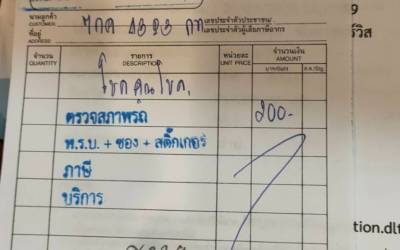 9
นามลูกค้า CUSTOMER
เลขประจำตัวประชาชน/
ที่อยู่ ADDRESS
เลขประจำตัวผู้เสียภาษีอากร
รวิส
จำนวน QUANTITY
รายการ DESCRIPTION
หน่วยละ UNIT PRICE
จำนวนเงิน AMOUNT
บาท/Baht
ส.ต./Stg.
ตรวจสภาพรถ 200-
พ.ร.บ. + ซอง + สติ๊กเกอร์
ภาษี
บริการ
tion.dlt